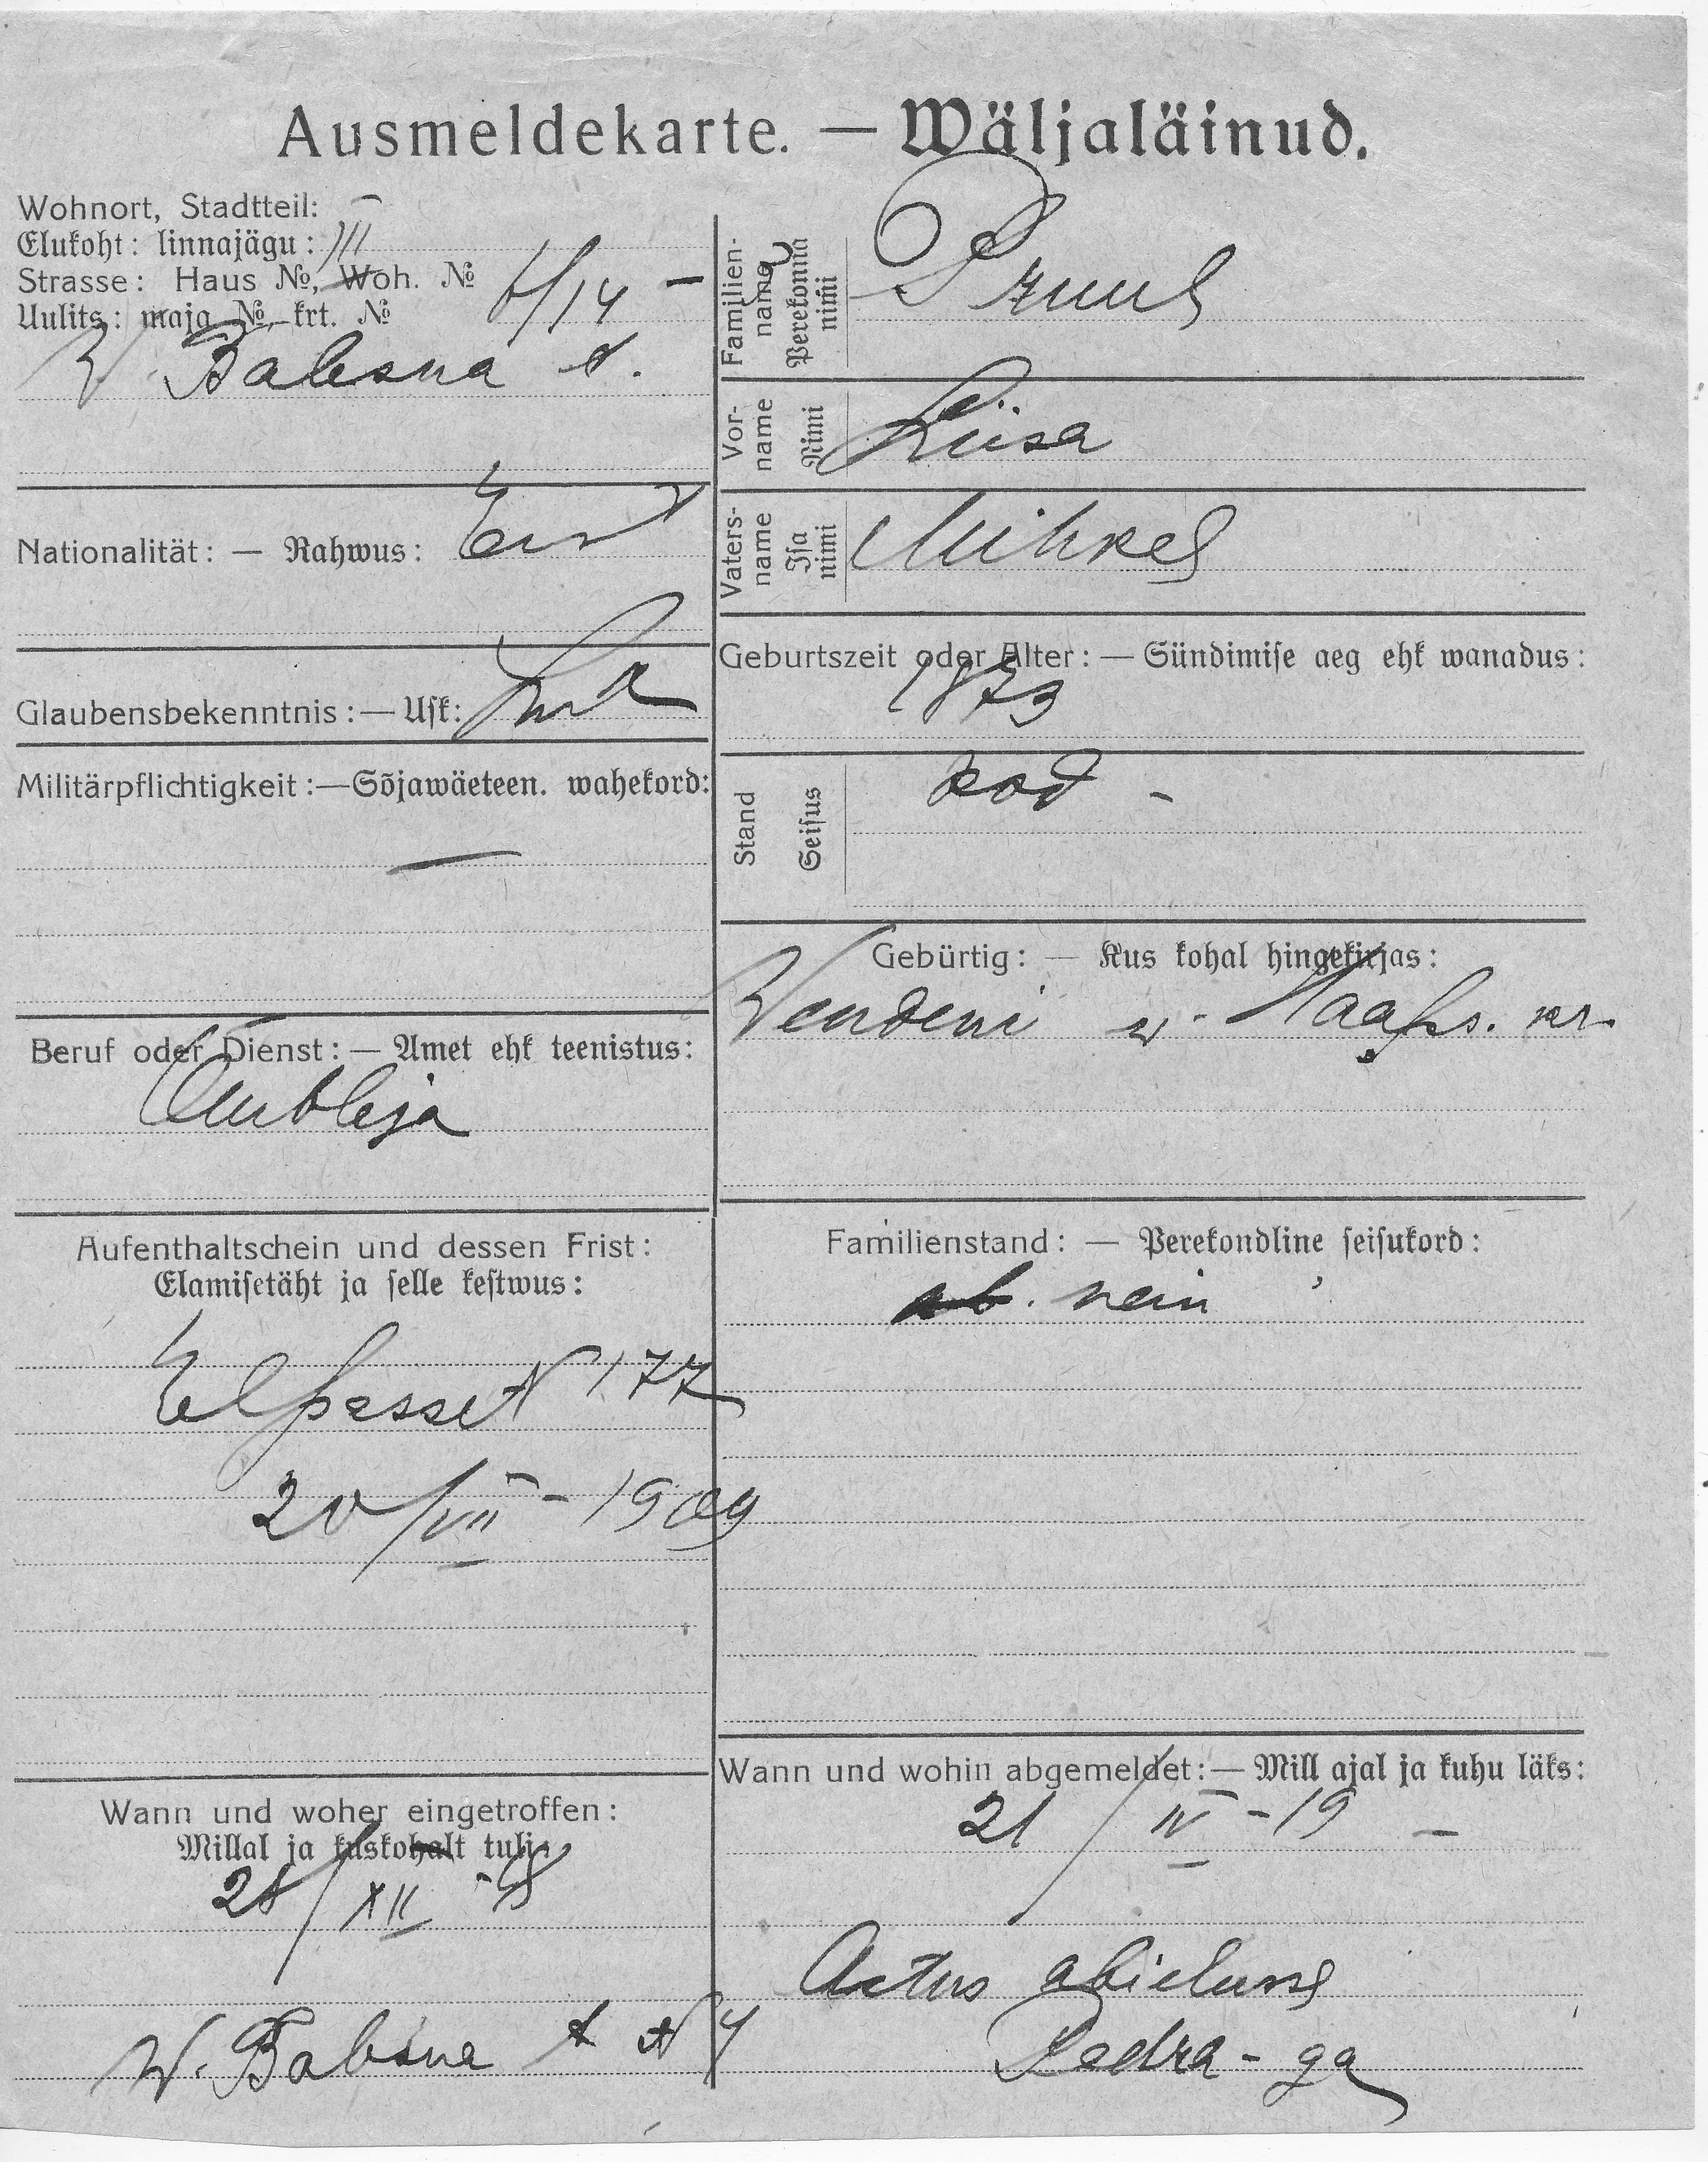 Ausmeldekarte. — Wäljaläinud.
Wohnort, Stadtteil:
Elukoht: linnajägu: III
Strasse: Haus №, Woh. №
Uulits: maja №, krt. № 6/14 -
W Babesna t.
Nationalität: — Rahwus: Eest
Glaubensbekenntnis: — Usk: Lut
Militärpflichtigkeit:—Sõjawäeteen. wahekord:
—
Beruf oder Dienst: — Amet ehk teenistus:
Õmbleja
Aufenthaltschein und dessen Frist:
Elamisetäht ja selle kestwus:
Elpasset N 177
20/VII - 1909
Wann und woher eingetroffen:
Millal ja kuskohalt tuli:
28/XII -18
W. Babsna t N 4
Familien-
name
Perekonna
nimi
Pruul
Vor-
name
Nimi
Liisa
Vaters-
name
Isa
nimi
Mihkel
Geburtszeit oder Alter: — Sündimise aeg ehk wanadus:
1873
Stand
Seisus
kod -
Gebürtig: — Kus kohal hingekirjas:
Wendeni w. Haaps. kr.
Familienstand: — Perekondline seisukord:
ab. nein
Wann und wohin abgemeldet: — Mill ajal ja kuhu läks:
21/IV - 19 —
Astus abielusse
Pedra - ga